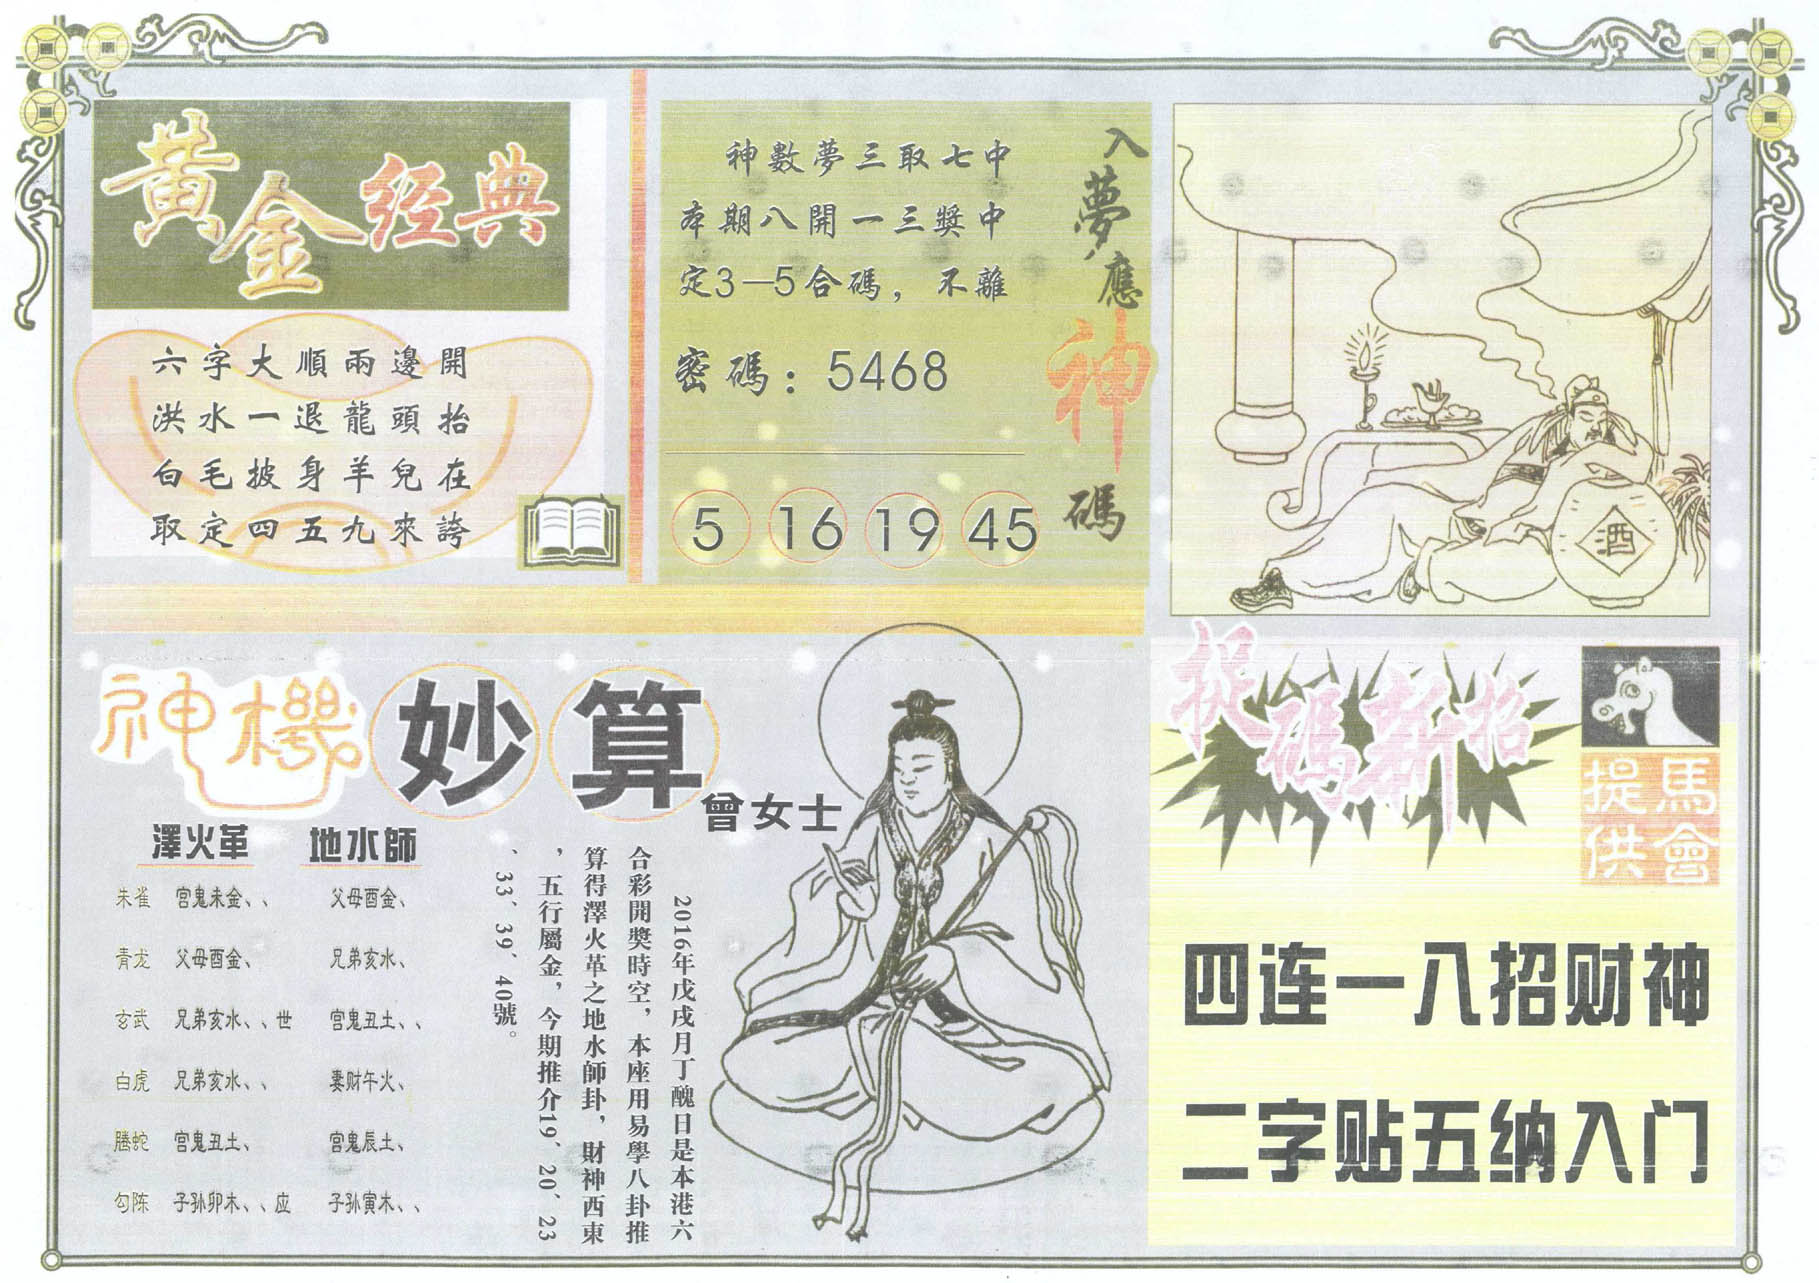 黃金经典
六字大順兩邊開
洪水一退龍頭抬
白毛披身羊兒在
取定四五九來誇
神數夢三取七中
本期八開一三獎中
定3—5合碼，不離
密碼：5468
5 16 19 45
入夢應神碼
酒
神機妙算
曾女士
澤火革 地水師
朱雀 宫鬼未金、、 父母酉金、
青龙 父母酉金、 兄弟亥水、
玄武 兄弟亥水、、世 宫鬼丑土、、
白虎 兄弟亥水、、 妻财午火、
螣蛇 宫鬼丑土、 宫鬼辰土、
勾陈 子孙卯木、、应 子孙寅木、、
2016年戊戌月丁醜日是本港六
合彩開獎時空，本座用易學八卦推
算得澤火革之地水師卦，財神西東
，五行屬金，今期推介19、20、23
、33、39、40號。
捉碼新招
馬會
提供
四连一八招财神
二字贴五纳入门